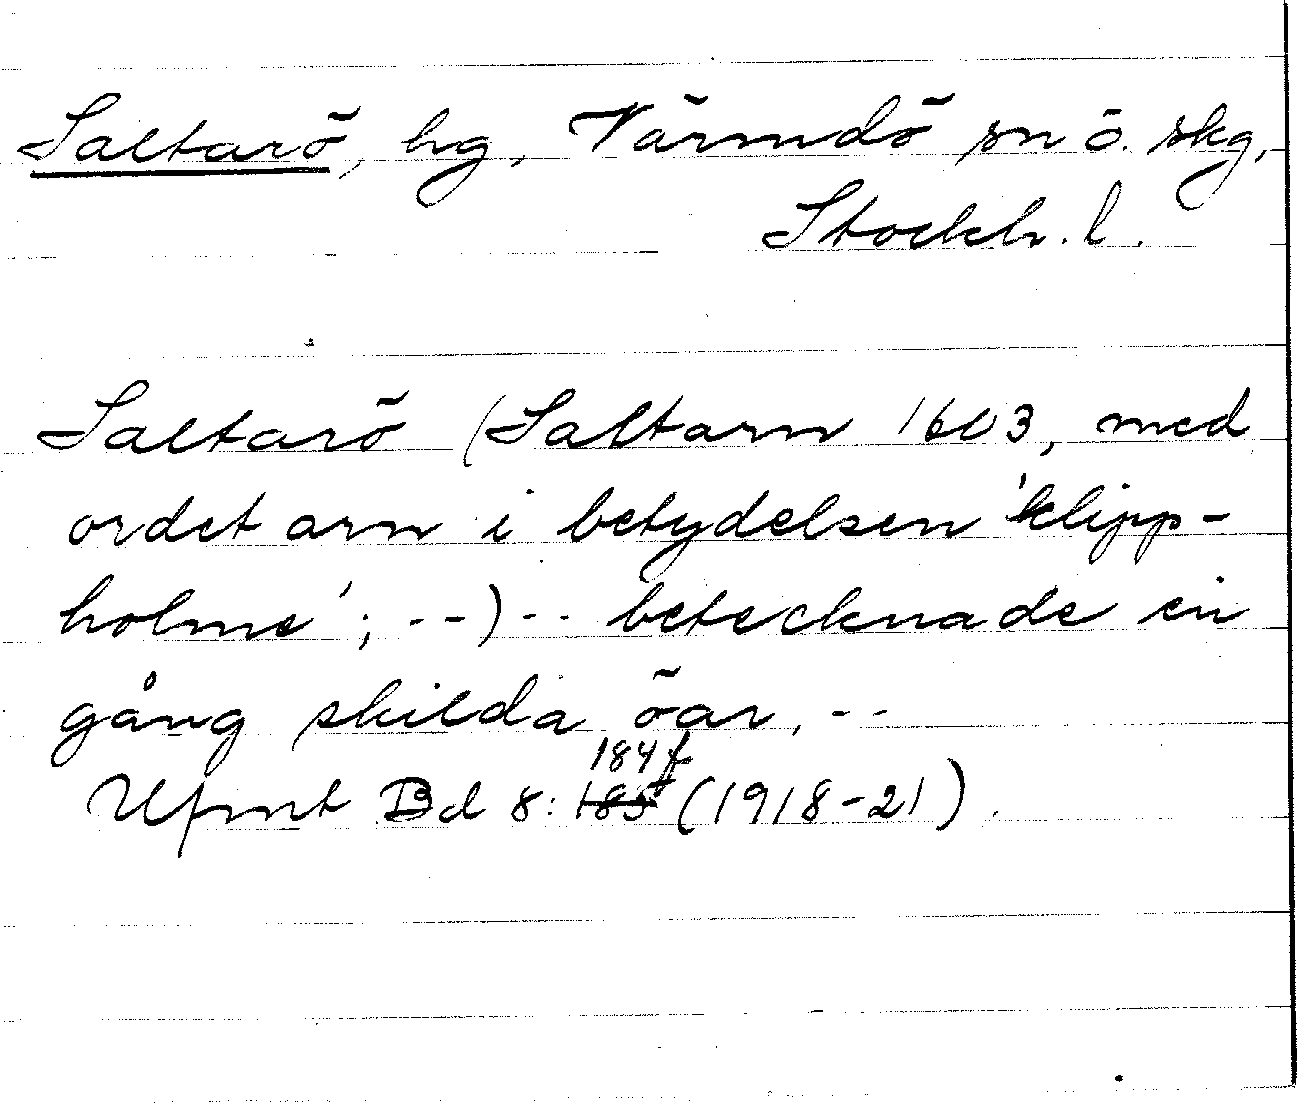 Saltarö, hg, Värmdö sn ö. skg,
Stockh. l.
Saltarö (Saltarn 1603, med
ordet arn i betydelsen 'klipp-
holme'; --) -- betecknade en
gång skilda öar, --
184 f
Ufmt Bd 8: 185 (1918-21).